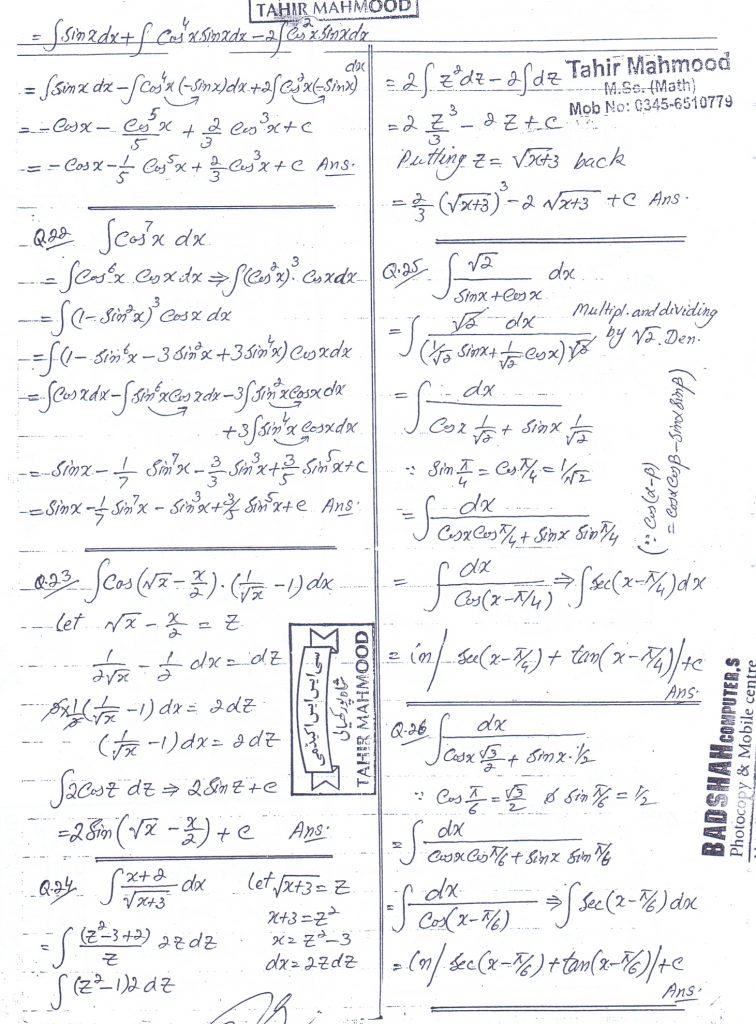 TAHIR MAHMOOD
= ∫Sinxdx + ∫Cos⁴xSinxdx – 2∫Cos²xSinxdx
= ∫Sinx dx – ∫Cos⁴x(-Sinx)dx + 2∫Cos²x(-Sinx)dx
= -Cosx – Cos⁵x/5 + 2/3 Cos³x + c
= -Cosx – 1/5 Cos⁵x + 2/3 Cos³x + c Ans.
Q.22 ∫Cos⁷x dx
= ∫Cos⁶x Cosx dx ⇒ ∫(Cos²x)³ Cosxdx
= ∫(1-Sin²x)³ Cosx dx
= ∫(1 – Sin⁶x – 3Sin²x + 3Sin⁴x) Cosxdx
= ∫Cosxdx – ∫Sin⁶xCosxdx – 3∫Sin²xCosxdx
+ 3∫Sin⁴x Cosxdx
= Sinx – 1/7 Sin⁷x – 3/3 Sin³x + 3/5 Sin⁵x + c
= Sinx – 1/7 Sin⁷x – Sin³x + 3/5 Sin⁵x + c Ans.
Q.23 ∫Cos(√x – x/2)·(1/√x – 1)dx
Let √x – x/2 = Z
1/2√x – 1/2 dx = dZ
2x1/2(1/√x – 1)dx = 2dZ
(1/√x – 1)dx = 2dZ
∫2CosZ dZ ⇒ 2SinZ + c
= 2Sin(√x – x/2) + c Ans.
Q.24 ∫ x+2/√x+3 dx Let √x+3 = Z
x+3 = Z²
x = Z²-3
dx = 2ZdZ
= ∫ (Z²-3+2)/Z 2ZdZ
∫(Z²-1)2dZ
= 2∫Z²dZ – 2∫dZ
Tahir Mahmood
M.Sc. (Math)
Mob No: 0345-6510779
= 2 Z³/3 – 2Z + c
Putting Z = √x+3 back
= 2/3 (√x+3)³ – 2√x+3 + c Ans.
Q.25 ∫ √2/Sinx+Cosx dx
= ∫ √2 dx/(1/√2 Sinx + 1/√2 Cosx)√2 Multipl. and dividing by √2. Den.
= ∫ dx/Cosx 1/√2 + Sinx 1/√2
∵ Sin π/4 = Cos π/4 = 1/√2
= ∫ dx/CosxCosπ/4 + Sinx Sinπ/4
(∵ Cos(α-β)
= CosαCosβ – SinαSinβ)
= ∫ dx/Cos(x-π/4) ⇒ ∫Sec(x-π/4)dx
= ln|Sec(x-π/4) + tan(x-π/4)| + c
Ans.
Q.26 ∫ dx/Cosx √3/2 + Sinx·1/2
∵ Cos π/6 = √3/2 & Sin π/6 = 1/2
= ∫ dx/CosxCosπ/6 + Sinx Sinπ/6
= ∫ dx/Cos(x-π/6) ⇒ ∫Sec(x-π/6)dx
= ln|Sec(x-π/6) + tan(x-π/6)| + c
Ans.
سی ایس ایس اکیڈمی
TAHIR MAHMOOD
BADSHAH COMPUTER,S
Photocopy & Mobile centre